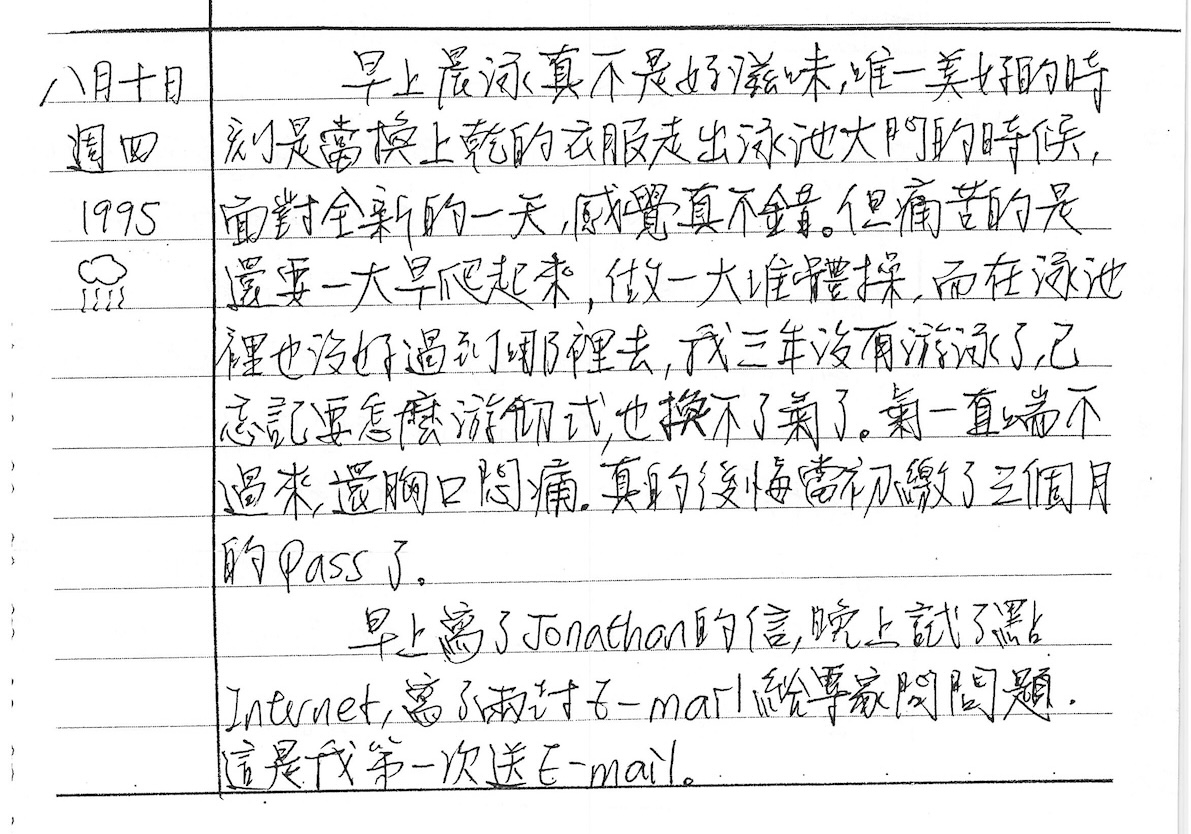 八月十日
週四
1995
早上晨泳真不是好滋味,唯一美好的時
刻是當換上乾的衣服走出泳池大門的時候,
面對全新的一天,感覺真不錯。但痛苦的是
還要一大早爬起來,做一大堆體操,而在泳池
裡也沒好過到哪裡去,我三年沒有游泳了,已
忘記要怎麼游仰式,也換不了氣了。氣一直喘不
過來,還胸口悶痛。真的後悔當初繳了三個月
的Pass了。
早上寫了Jonathan的信,晚上試了點
Internet,寫了兩封E-mail給專家問問題.
這是我第一次送E-mail。